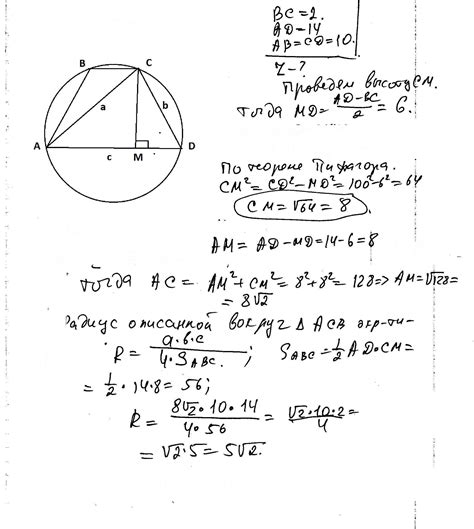 BC = 2.
AD = 14
AB = CD = 10.
r - ?
Проведём высоту CM.
тогда MD = (AD - BC)/2 = 6.
B C
a b
A c M D
По теореме Пифагора.
CM² = CD² - MD² = 100² - 6² = 64
CM = √64 = 8
AM = AD - MD = 14 - 6 = 8
тогда AC = AM² + CM² = 8² + 8² = 128 => AM = √128 =
= 8√2
Радиус описанной вокруг Δ ACB окр-ти-
R = a·b·c / 4·S ABC ; S ABC = 1/2 AD·CM =
= 1/2 · 14·8 = 56;
R = 8√2·10·14 / 4·56 = √2·10·2 / 4 =
= √2·5 = 5√2.